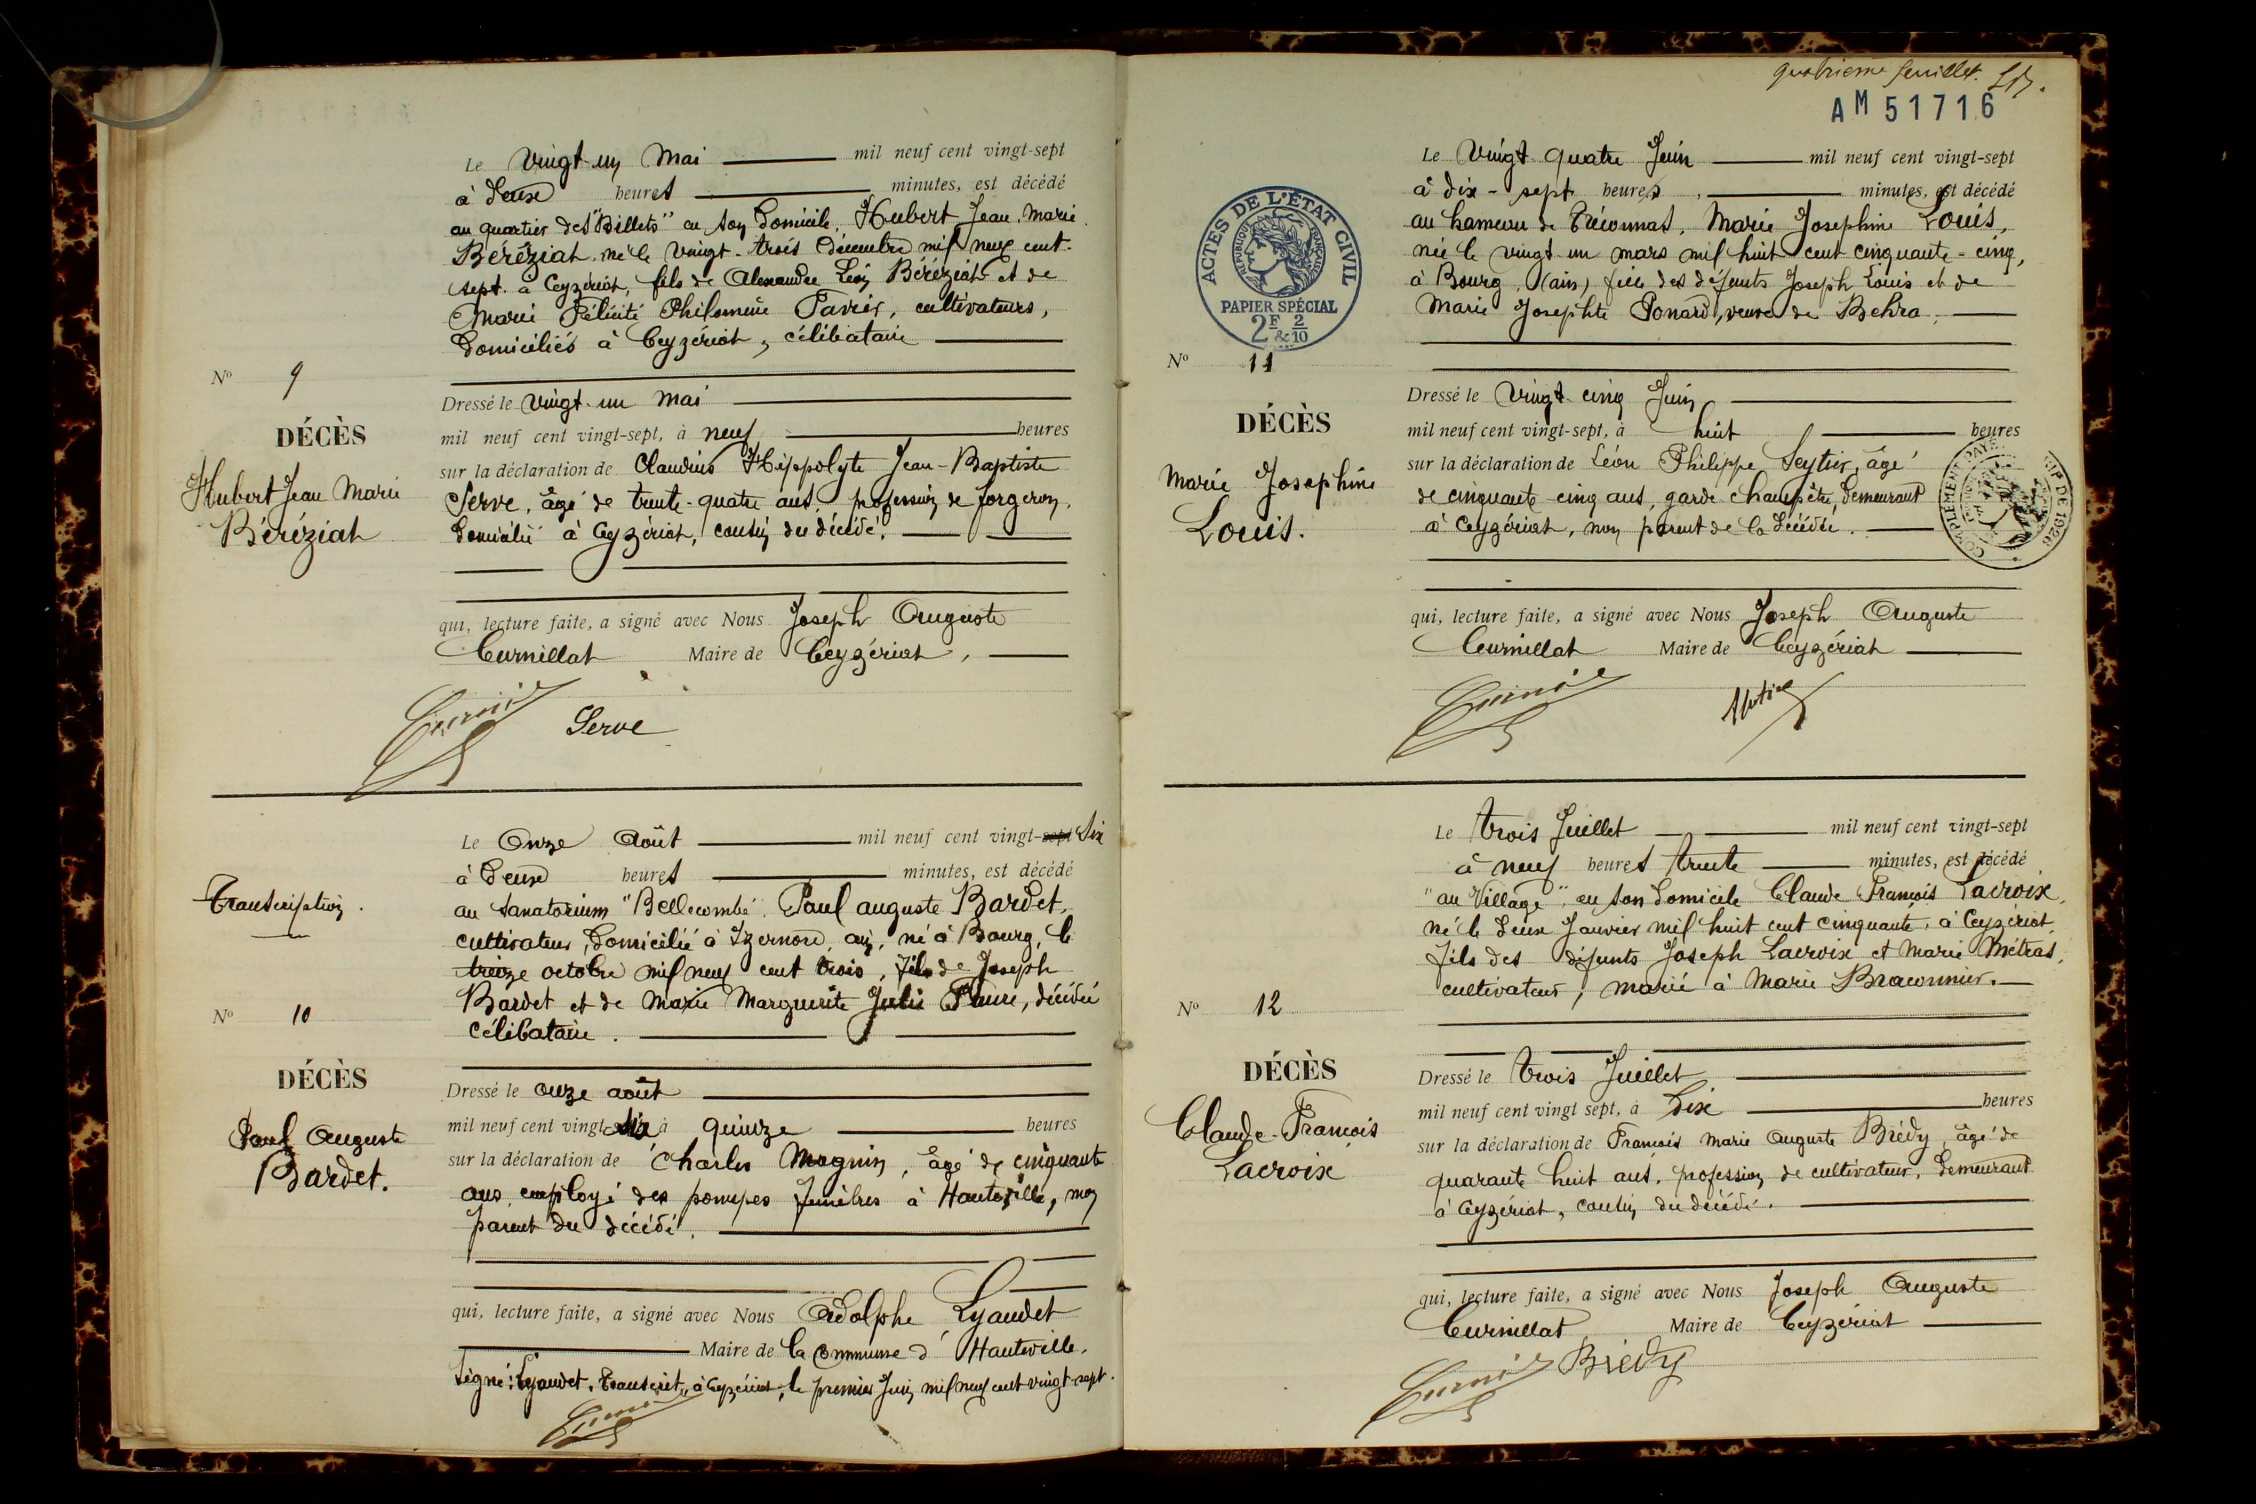 Le vingt-un Mai mil neuf cent vingt-sept
à deux heures minutes, est décédé
au quartier des "Billets" en son domicile, Hubert Jean Marie
Béréziat né le vingt-trois décembre mil neuf cent
sept à Ceyzériat, fils de Alexandre Léon Béréziat et de
Marie Félicité Philomène Pavier, cultivateurs,
domiciliés à Ceyzériat, célibataire
No 9
DÉCÈS
Hubert Jean Marie
Béréziat
Dressé le vingt-un Mai
mil neuf cent vingt-sept, à neuf heures
sur la déclaration de Claudius Hippolyte Jean-Baptiste
Serve, âgé de trente-quatre ans, profession de forgeron,
domicilié à Ceyzériat, cousin du décédé.
qui, lecture faite, a signé avec Nous Joseph Auguste
Curnillat Maire de Ceyzériat,
Serve
Transcription.
Le Onze Août mil neuf cent vingt-sept six
à deux heures minutes, est décédé
au sanatorium "Bellecombe". Paul Auguste Bardet,
cultivateur, domicilié à Izernore, ain, né à Bourg, le
treize octobre mil neuf cent trois, fils de Joseph
Bardet et de Marie Marguerite Julie Faure, décédée
célibataire.
No 10
DÉCÈS
Paul Auguste
Bardet.
Dressé le onze août
mil neuf cent vingt six à quinze heures
sur la déclaration de Charles Magnin, âgé de cinquante
ans, employé des pompes funèbres à Hauteville, non
parent du décédé.
qui, lecture faite, a signé avec Nous Adolphe Lyaudet
Maire de la Commune d'Hauteville.
Signé: Lyaudet. Transcrit à Ceyzériat, le premier Juin mil neuf cent vingt-sept.
quatrième feuillet.
AM 51716
ACTES DE L'ÉTAT CIVIL
RÉPUBLIQUE FRANÇAISE
PAPIER SPÉCIAL
2F & 2/10
Le vingt quatre Juin mil neuf cent vingt-sept
à dix-sept heures, minutes, est décédé
au hameau de Tréconnas, Marie Joséphine Louis,
née le vingt-un mars mil huit cent cinquante-cinq,
à Bourg, (ain) fille des défunts Joseph Louis et de
Marie Josephte Ponard, veuve de Behra.
No 11
DÉCÈS
Marie Joséphine
Louis.
Dressé le vingt-cinq Juin
mil neuf cent vingt-sept, à huit heures
sur la déclaration de Léon Philippe Seytier, âgé
de cinquante-cinq ans, garde-champêtre, demeurant
à Ceyzériat, non parent de la décédée.
COMPLÉMENT PAYÉ
DE 1926
qui, lecture faite, a signé avec Nous Joseph Auguste
Curnillat Maire de Ceyzériat
Le trois Juillet mil neuf cent vingt-sept
à neuf heures trente minutes, est décédé
"au Village" en son domicile Claude François Lacroix,
né le deux Janvier mil huit cent cinquante, à Ceyzériat,
fils des défunts Joseph Lacroix et Marie Métras,
cultivateur, marié à Marie Braconnier.
No 12
DÉCÈS
Claude-François
Lacroix
Dressé le trois Juillet
mil neuf cent vingt sept, à Dix heures
sur la déclaration de François Marie Auguste Brédy, âgé de
quarante huit ans, profession de cultivateur, demeurant
à Ceyzériat, cousin du décédé.
qui, lecture faite, a signé avec Nous Joseph Auguste
Curnillat Maire de Ceyzériat
Brédy